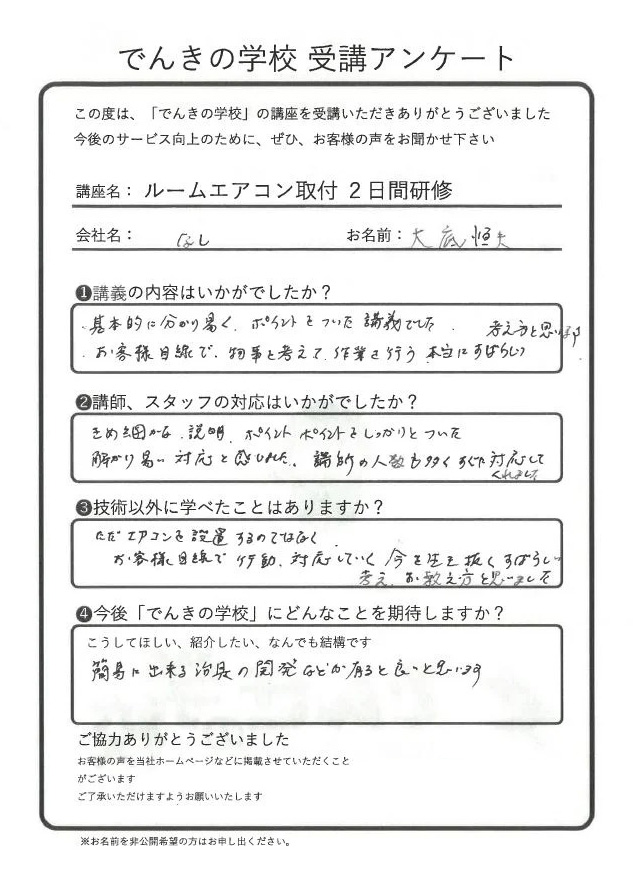 でんきの学校 受講アンケート
この度は、「でんきの学校」の講座を受講いただきありがとうございました
今後のサービス向上のために、ぜひ、お客様の声をお聞かせ下さい
講座名： ルームエアコン取付 2日間研修
会社名： なし お名前： 大底 恒夫
❶講義の内容はいかがでしたか？
・基本的に分かり易く、ポイントをついた講義でした
・お客様目線で、物事を考えて、作業を行う 本当にすばらしい
考え方と思います
❷講師、スタッフの対応はいかがでしたか？
きめ細かな、説明、ポイントポイントをしっかりとついた
解かり易い対応と感じました。講師の人数も多くすぐに対応して
くれました
❸技術以外に学べたことはありますか？
ただエアコンを設置するのではなく
お客様目線で行動、対応していく 今を生き抜くすばらしい
考え、お教え方と思いました
❹今後「でんきの学校」にどんなことを期待しますか？
こうしてほしい、紹介したい、なんでも結構です
簡易に出来る治具の開発などが有ると良いと思います
ご協力ありがとうございました
お客様の声を当社ホームページなどに掲載させていただくこと
がございます
ご了承いただけますようお願いいたします
※お名前を非公開希望の方はお申し出ください。